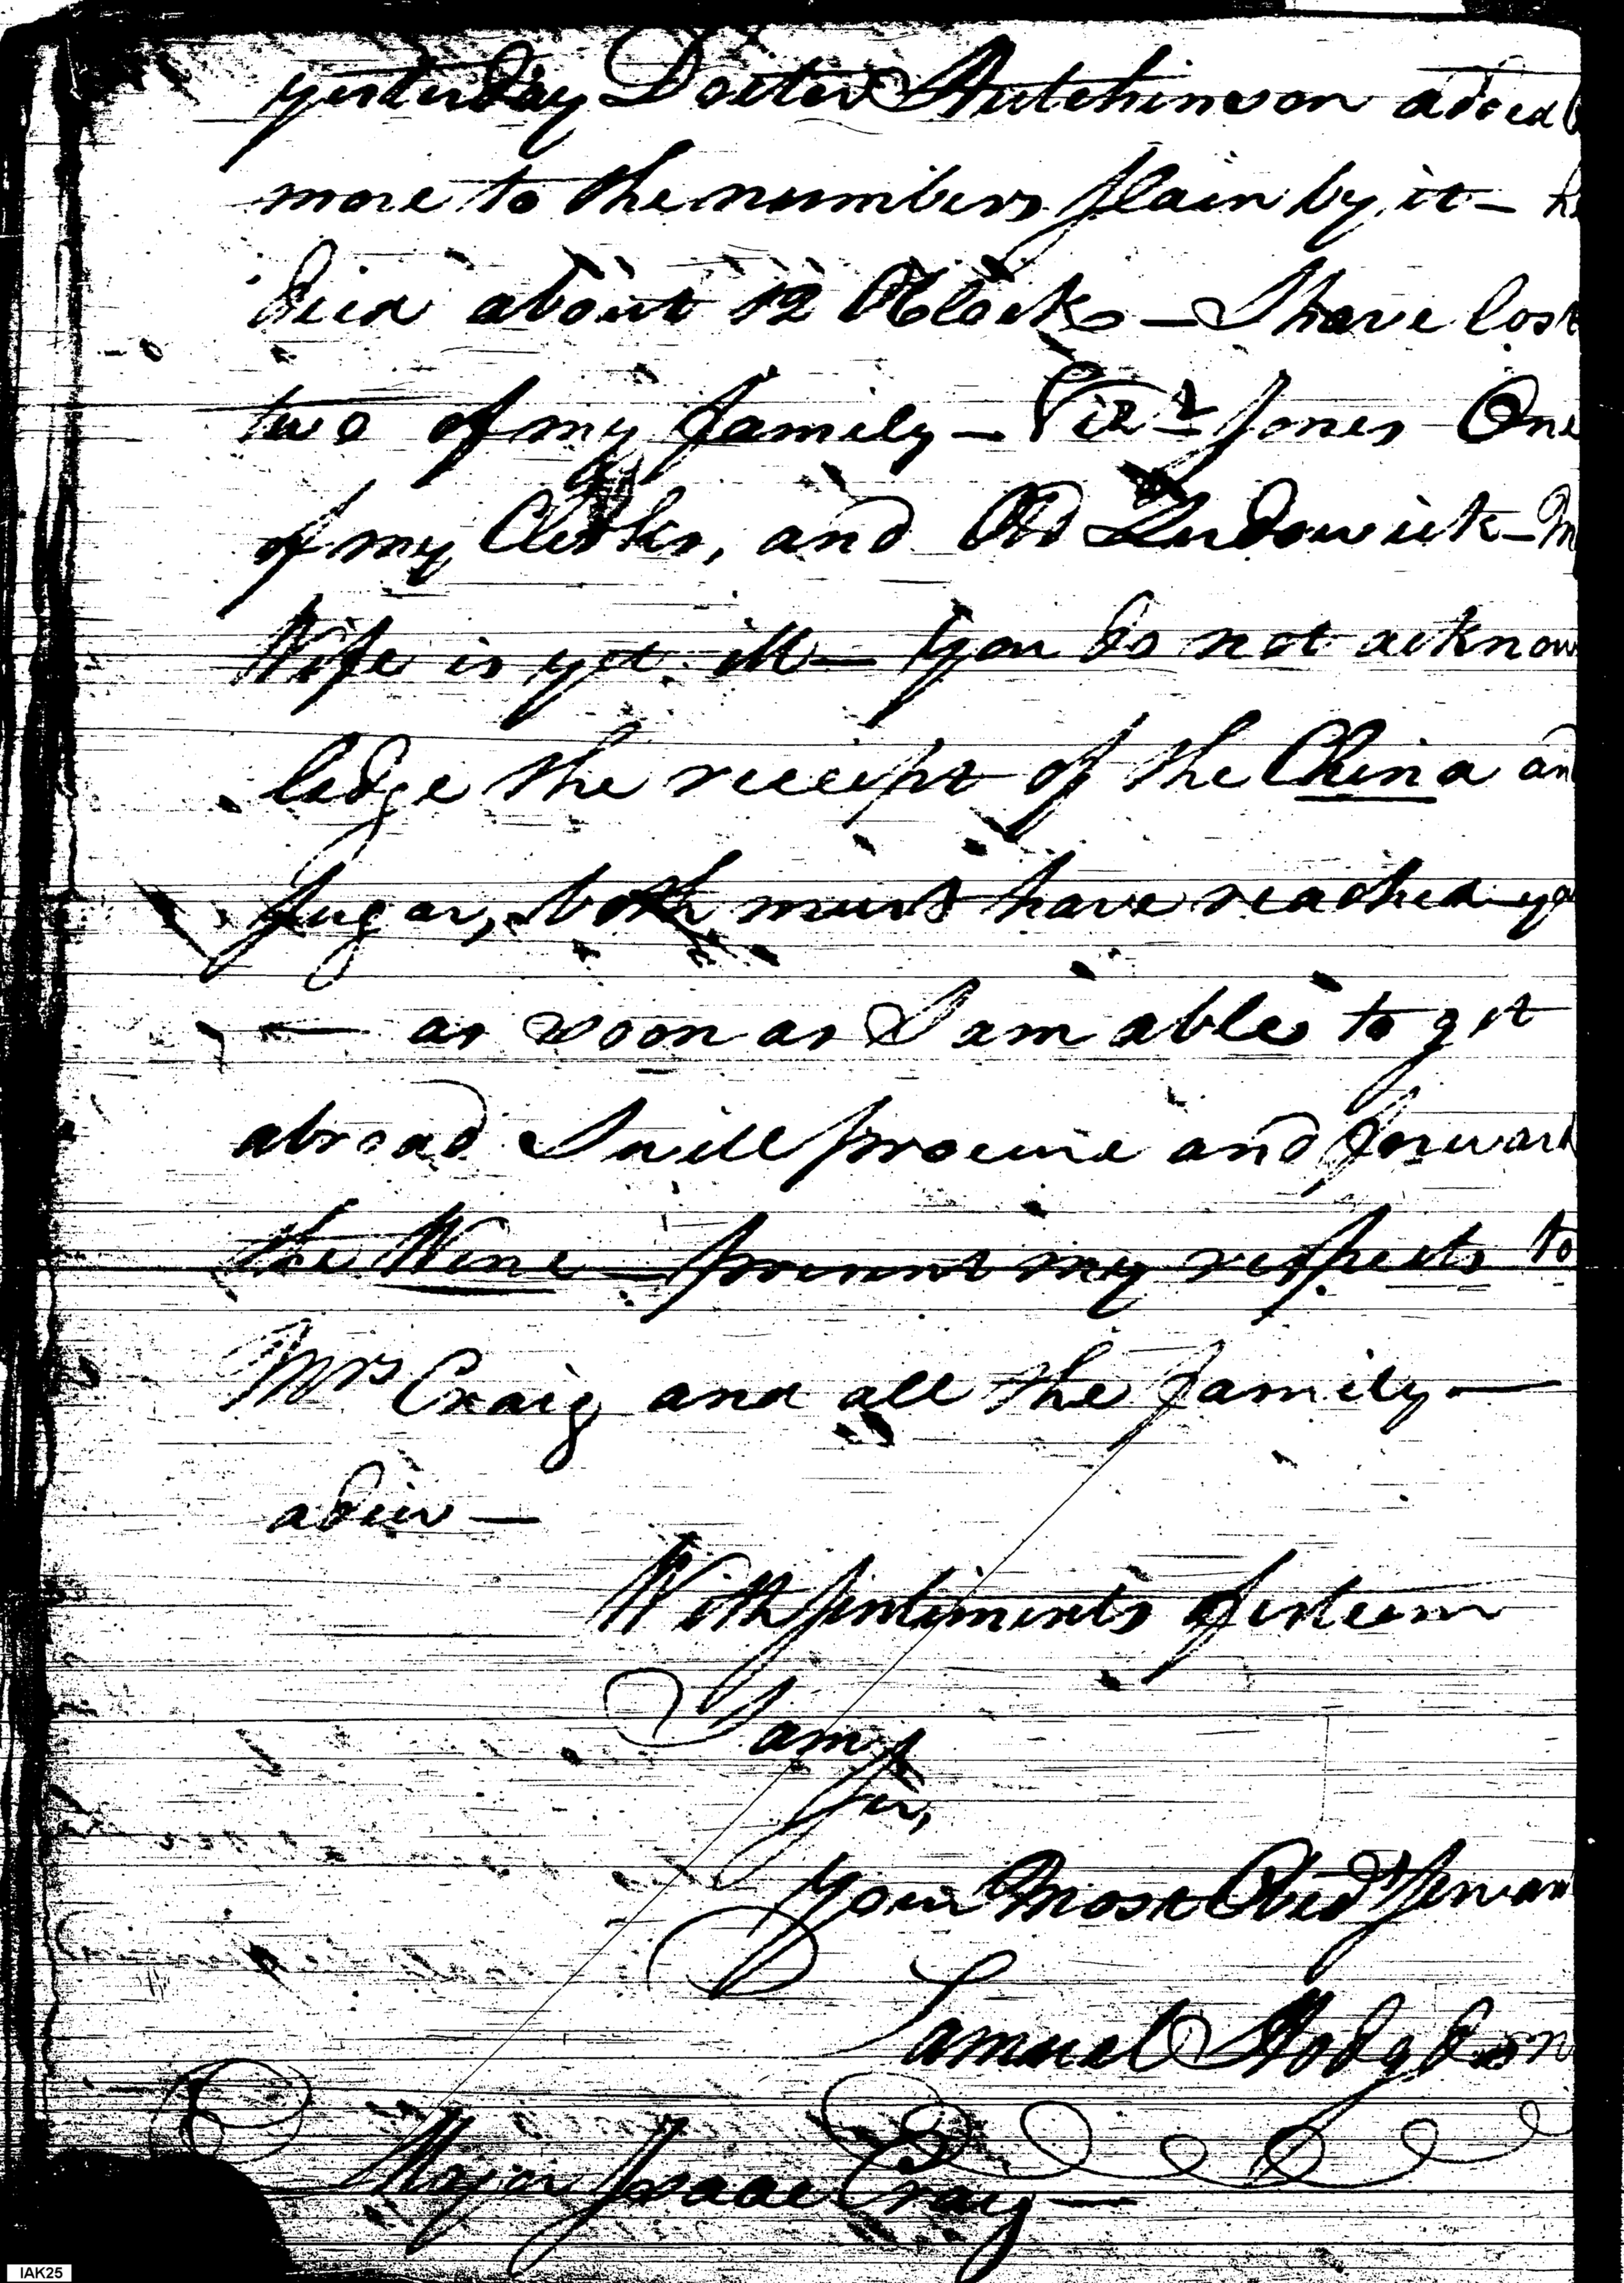 yesterday Docter Hutchinson added
more to the numbers slain by it — he
died about 12 OClock — I have lost
two of my family — Vizt Jones One
of my Clerks, and Old Ludowick — M
Wife is yet ill — You do not acknow
ledge the receipt of the China an
Sugar, both must have reached yo
— as soon as I am able to get
abroad I will procure and forward
the Wine — present my respects to
Mrs Craig and all the family —
adieu —
With sentiments of esteem
I am
Sir,
Your Most Obedt Servan
Samuel Hodgdon
Major Isaac Craig —
IAK25